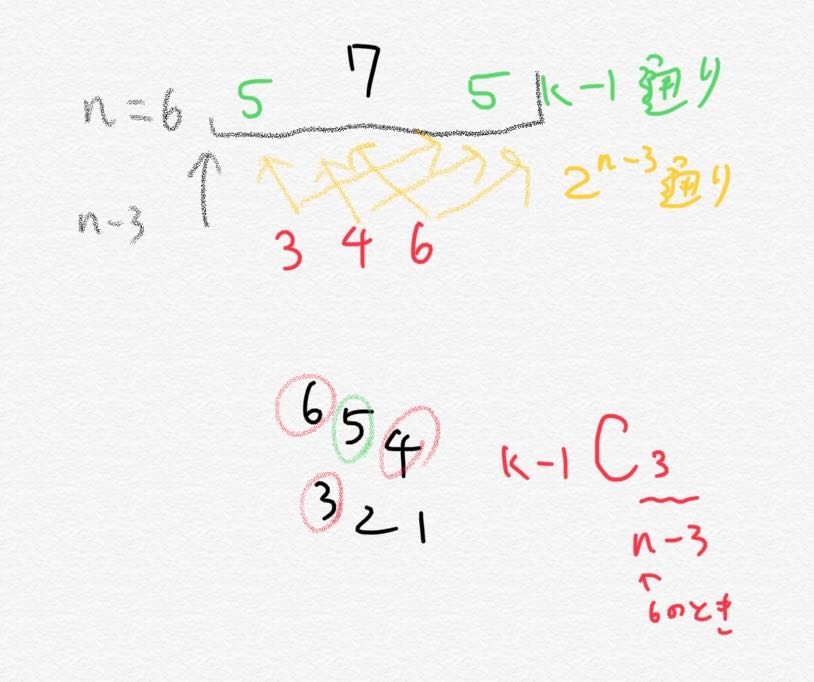 7
n=6 5 5 k-1 通り
n-3 2^{n-3} 通り
3 4 6
6 5 4
3 2 1
k-1 C 3
n-3
↑
6のとき